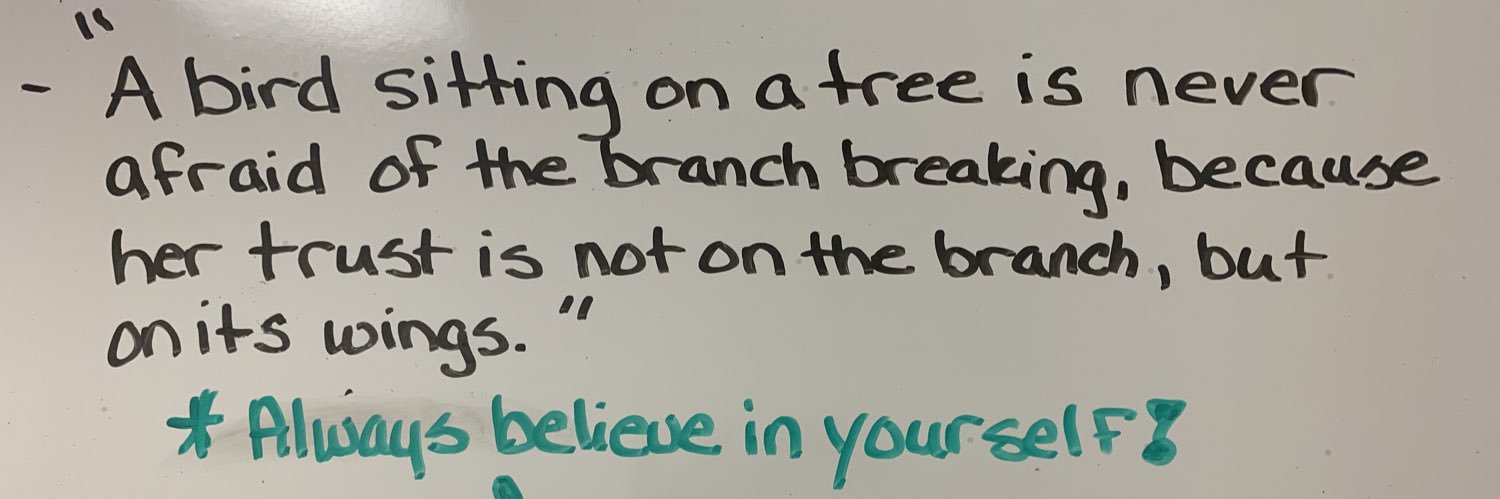 - "A bird sitting on a tree is never
afraid of the branch breaking, because
her trust is not on the branch, but
on its wings."
* Always believe in yourself!